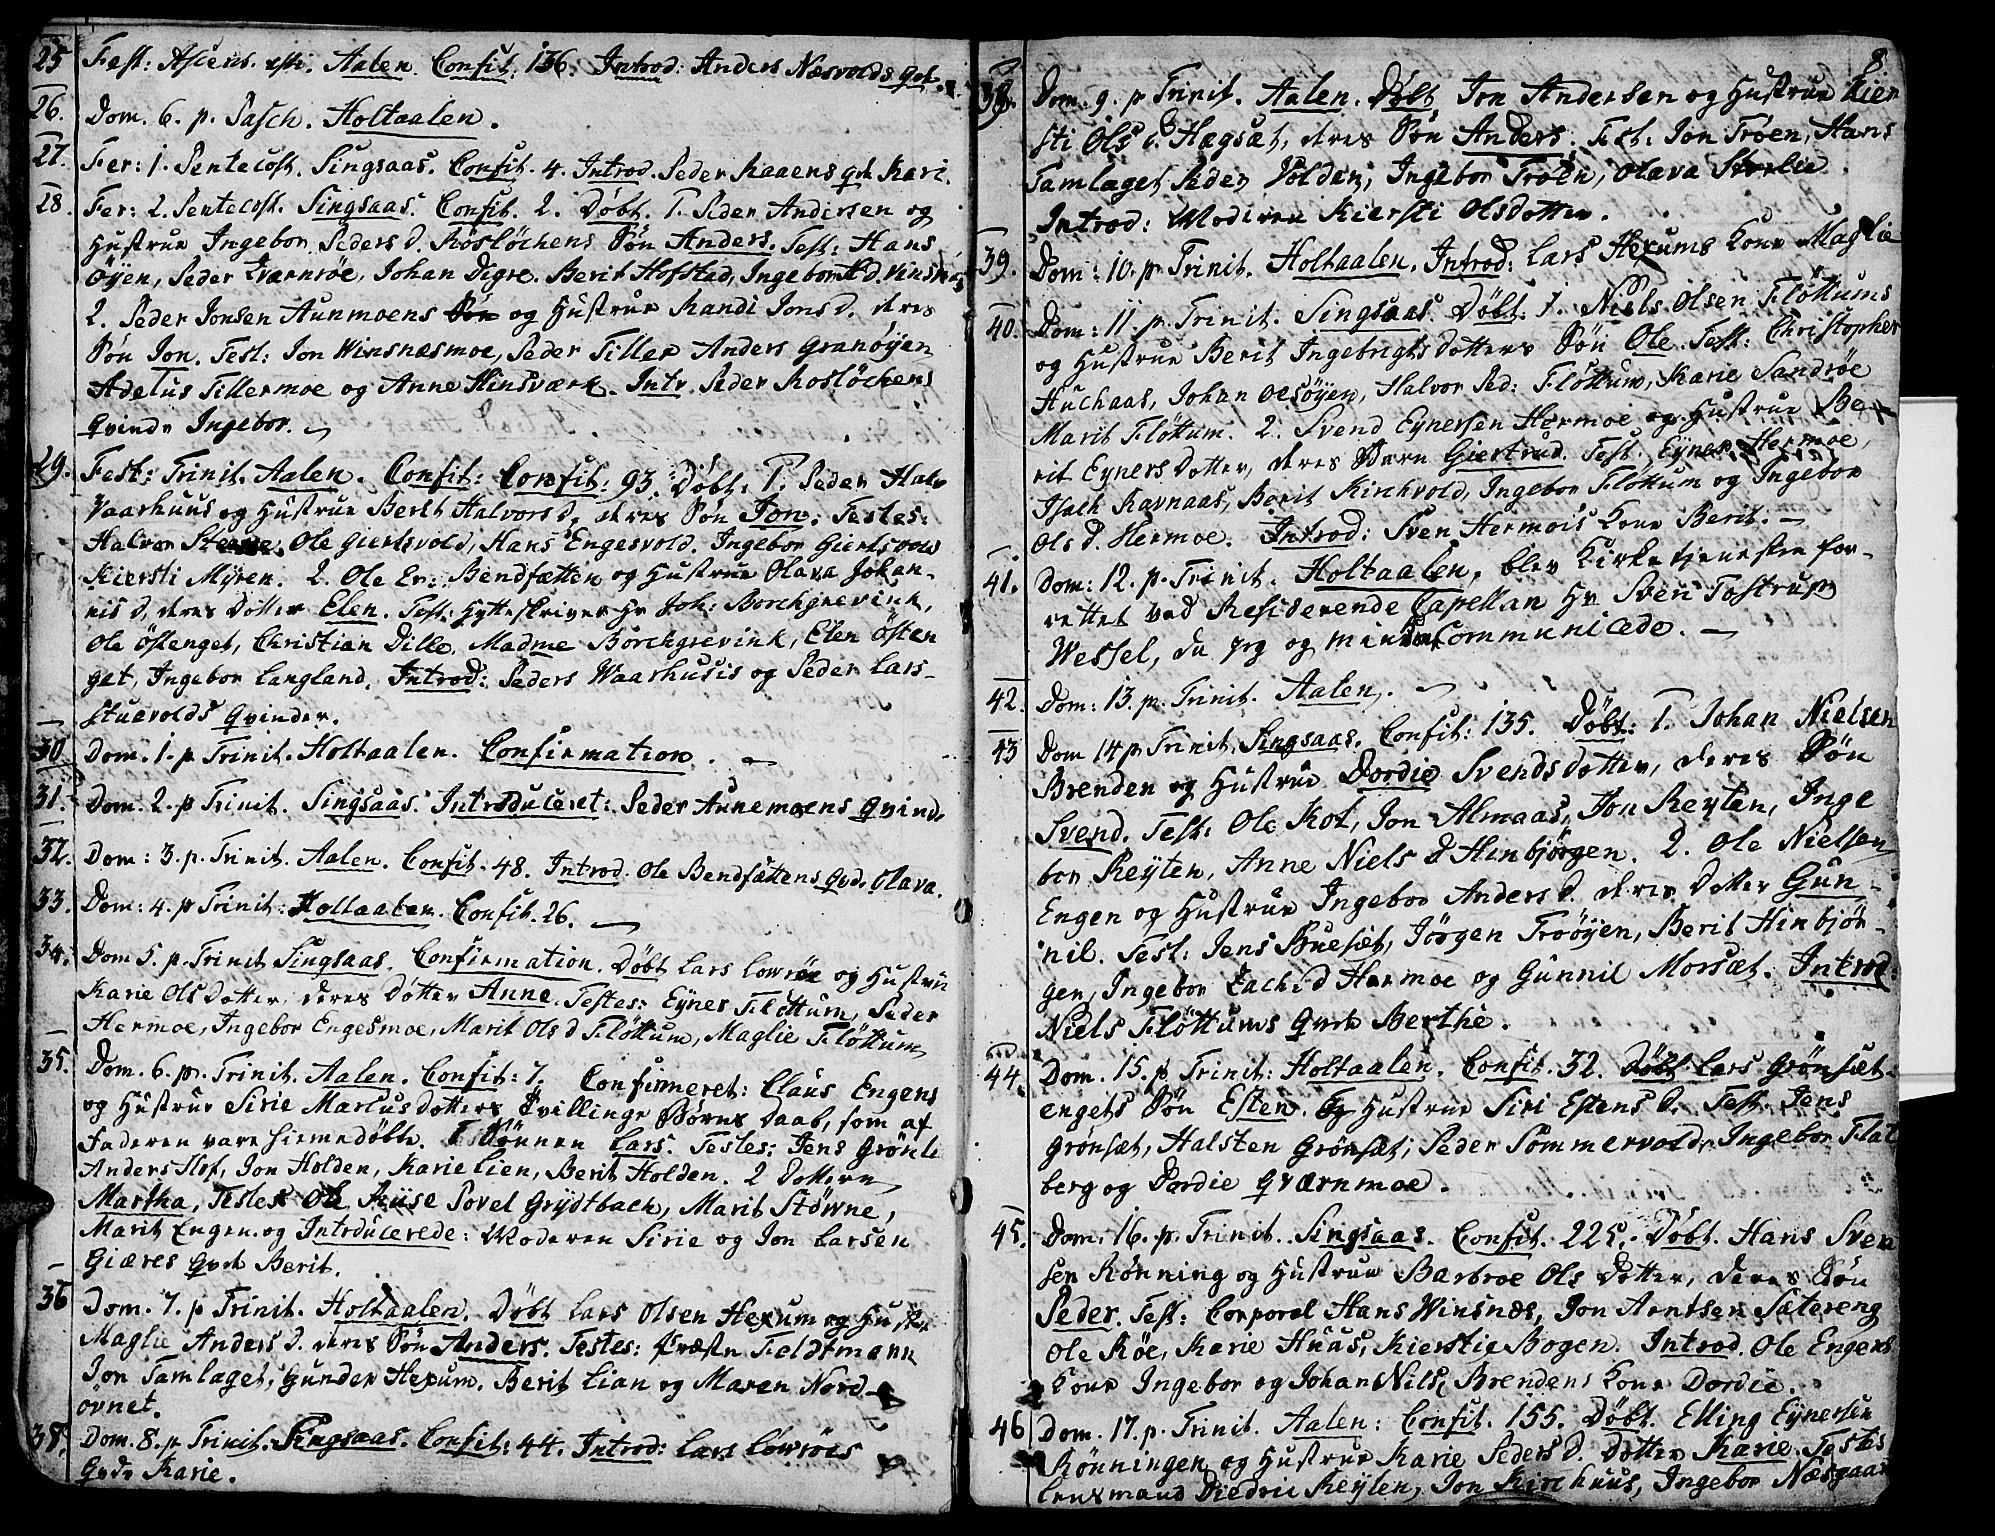 25 Fest: Ascens. Aalen. Confit: 136. Introd: Anders Næsvolds Qvi.
26. Dom. 6. p. Pasch. Holtaalen.
27. Fer: 1. Pentecost. Singsaas. Confit. 4. Introd. Peder Kaaens Qvi Kari.
28. Fer: 2. Pentecost. Singsaas. Confit. 2. Döbt. 1. Peder Andersen og
Hustrue Ingebor Peders d. Röslöchens Sön Anders. Test: Hans
Öyen, Peder Kværnröe, Johan Digre. Berit Hofstad, Ingebor
2. Peder Jonsen Aunmoens og Hustrue Randi Jons d. deres
Sön Jon. Test: Jon Winsnæsmoe, Peder Tiller Anders Granöyen
Adelus Tillermoe og Anne Hinsværk. Intr. Peder Roslöchens
Qvinde Ingebor.
29. Fest: Trinit. Aalen. Confit: Confit: 93. Döbt. 1. Peder Halv
Vaarhuus og Hustrue Berit Halvors d. deres Sön Jon. Testes:
Halvor Ole Giertsvold, Hans Engesvold. Ingebor Giertsvold
Kiersti Myren. 2. Ole Er: Bendsætten og Hustrue Olava Johan-
nis d, deres Dotter Elen. Test: Hytteskriver Hr Joh: Borchgrevink,
Ole Östenget, Christian Dille, Madme Borchgrevink, Elen Östen
get, Ingebor Langland. Introd: Peders Waarhusis og Peder Lars-
stuevolds Qvinder.
30 Dom. 1. p Trinit. Holtaalen. Confirmation.
31. Dom. 2. p Trinit. Singsaas. Introduceret: Peder Aunemoens Qvind.
32. Dom: 3. p. Trinit. Aalen. Confit. 48. Introd. Ole Bendsættens Qvd. Olava.
33. Dom: 4. p Trinit: Holtaalen. Confit. 26.
34. Dom 5. p. Trinit Singsaas. Confirmation. Döbt Lars Lowröe og Hustru
Karie Olsdotter, deres Dötter Anne. Testes: Eyner Flöttum, Peder
Hermoe, Ingebor Engesmoe, Marit Ols d Flöttum, Maglie Flöttum
35. Dom. 6. p. Trinit. Aalen. Confit: 7. Confirmeret: Claus Engens
og Hustrue Sirie Marcusdotters Tvillinge Börns Daab, som af
Faderen vare hiemedöbte. 1 Sönnen Lars. Testes: Jens Grönli
Anders Hof, Jon Holden, Karie Lien, Berit Holden. 2 Dotteren
Martha, Testes Ole Kiise Povel Grydtbach, Marit Störne,
Marit Engen. og Introducerede: Moderen Sirie og Jon Larsen
Giæres Qvd Berit.
36 Dom. 7. p Trinit. Holtaalen. Döbt Lars Olsen Hexum og Hustr
Maglie Anders d. deres Sön Anders. Testes: Feldtmann
Jon Tamlaget, Gunder Hexum. Berit Lian og Maren Nord
övnet.
38. Dom. 8. p Trinit. Singsaas. Confit: 44. Introd: Lars Lowröes
Qvd. Karie.
8
38. Dom. 9. p Trinit. Aalen. Döbt Jon Andersen og Hustrue Kier
sti Ols d. Hagsæt, deres Sön Anders. Test: Jon Tröen, Hans
Tamlaget Peder Volden, Ingebor Tröen, Olava
Introd: Moderen Kiersti Olsdotter.
39. Dom: 10. p Trinit. Holtaalen. Introd: Lars Hexums Kone Maglie
40. Dom: 11 p. Trinit. Singsaas. Döbt: 1. Niels Olsen Flöttums
og Hustrue Berit Ingebrigtsdotters Sön Ole. Test: Christopher
Huchaas, Johan Olsöyen, Halvor Ped: Flöttum, Karie Sandröe
Marit Flöttum. 2. Svend Eynersen Hermoe og Hustrue Be-
rit Eynersdotter, deres Barn Giertrud. Test. Eyner Hermoe,
Isach Ravnaas, Berit Kirchvold, Ingebor Flöttum og Ingebor
Ols d. Hermoe. Introd: Sven Hermois Kone Berit.
41. Dom: 12. p. Trinit. Holtaalen, blev Kirketienesten for-
rettet ved Residerende Capellan Hr Sven Tostrup
Wessel, da jeg og Communicede.
42. Dom: 13. p. Trinit. Aalen.
43 Dom 14 p Trinit. Singsaas. Confit: 135. Döbt: 1. Johan Nielsen
Brenden og Hustrue Dordie Svendsdotter, deres Sön
Svend. Test: Ole Kot, Jon Almaas, Jon Reyten, Inge
bor Reyten, Anne Niels d Hinbjörgen. 2. Ole Nielsen
Engen og Hustrue Ingebor Anders d. deres Dotter Gun-
nil. Test: Jens Bruesæt, Jörgen Trööyen, Berit Hinbjör-
gen, Ingebor Zachid Hermoe og Gunnil Morsæt. Introd:
Niels Flöttums Qvd Berthe.
44. Dom. 15. p Trinit: Holtaalen. Confit. 32. Döbt Lars Grönsæt-
engets Sön Esten. Og Hustrue Siri Estens d. Test. Jens
Grönsæt, Halsten Grönsæt, Peder Sommervold, Ingebor Flat
berg og Dordie Qværnmoe.
45. Dom. 16. p. Trinit. Singsaas. Confit. 225. Döbt. Hans Sven
sen Rönning og Hustrue Barbroe Olsdotter, deres Sön
Peder. Test: Corporel Hans Winsnæs, Jon Arntsen Sætereng
Ole Röe, Karie Huus, Kierstie Bogen. Introd. Ole Engens
Kone Ingebor og Johan Nils. Brendens Kone Dordie.
46 Dom. 17. p. Trinit. Aalen: Confit. 155. Döbt. Elling Eynersen
Rönningen og Hustrue Karie Peders d. Dotter Karie. Testes
Lensmand Diedric Reyten, Jon Kirchhuus, Ingebor Næsgaar